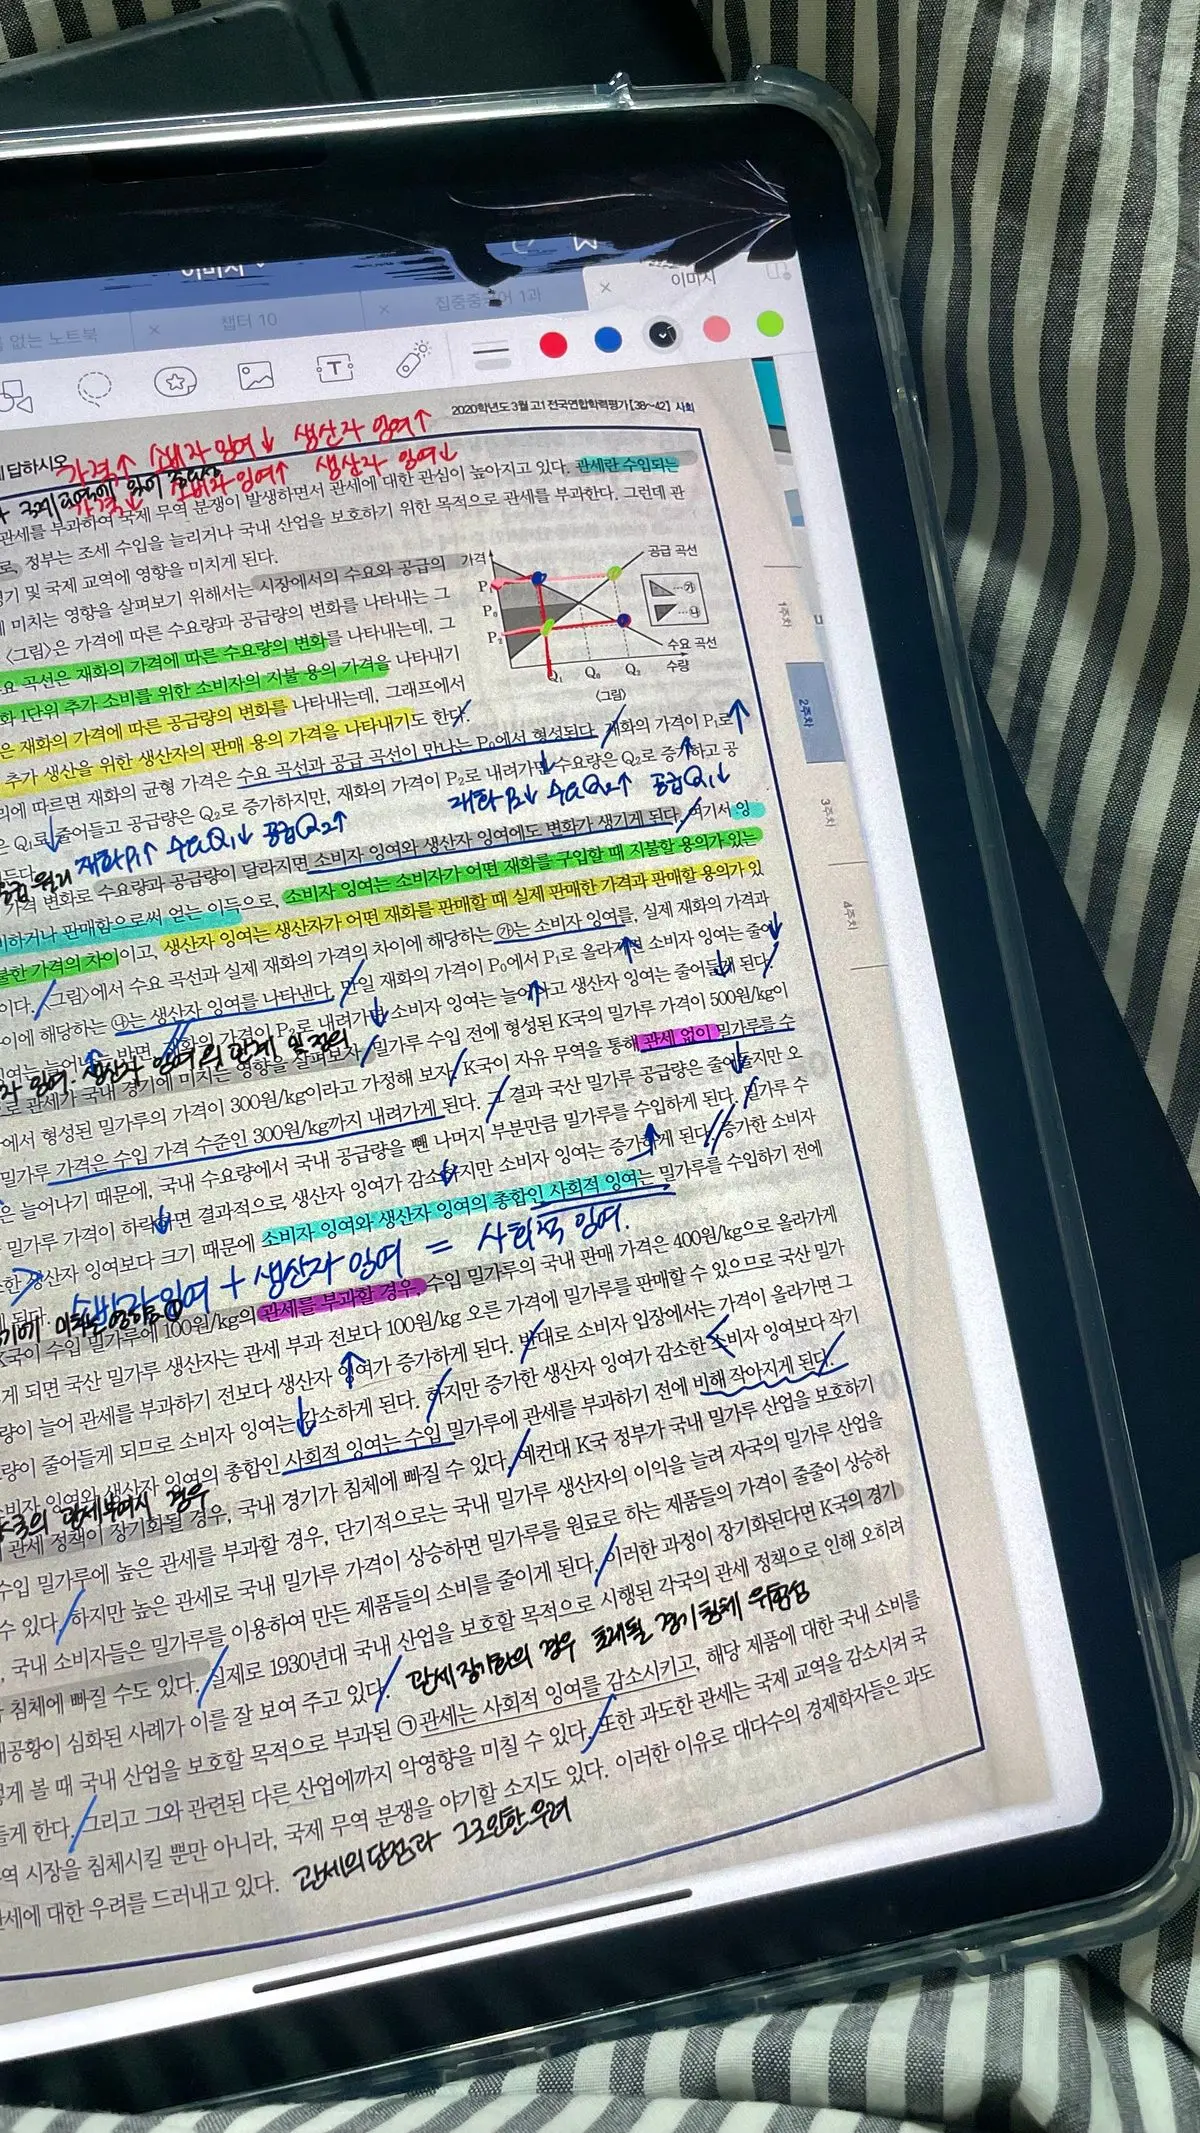 이미지
없는 노트북
× 챕터 10
× 집중중국어 1과
× 이미지
T
2020학년도 3월 고1 전국연합학력평가 [38~42] 사회
답하시오
가격↑ 소비자 잉여↓ 생산자 잉여↑
가격↓ 소비자 잉여↑ 생산자 잉여↓
관세를 부과하여 국제 무역 분쟁이 발생하면서 관세에 대한 관심이 높아지고 있다. 관세란 수입되는
로, 정부는 조세 수입을 늘리거나 국내 산업을 보호하기 위한 목적으로 관세를 부과한다. 그런데 관
경기 및 국제 교역에 영향을 미치게 된다.
미치는 영향을 살펴보기 위해서는 시장에서의 수요와 공급의
〈그림〉은 가격에 따른 수요량과 공급량의 변화를 나타내는 그
요 곡선은 재화의 가격에 따른 수요량의 변화를 나타내는데, 그
화 1단위 추가 소비를 위한 소비자의 지불 용의 가격을 나타내기
은 재화의 가격에 따른 공급량의 변화를 나타내는데, 그래프에서
추가 생산을 위한 생산자의 판매 용의 가격을 나타내기도 한다.
가격
공급 곡선
P₁
P₀
P₂
…㉮
…㉯
수요 곡선
수량
Q₁ Q₀ Q₂
〈그림〉
리에 따르면 재화의 균형 가격은 수요 곡선과 공급 곡선이 만나는 P₀에서 형성된다. 재화의 가격이 P₁로
은 Q₁로 줄어들고 공급량은 Q₂로 증가하지만, 재화의 가격이 P₂로 내려가면 수요량은 Q₂로 증가하고 공
재화 P₂↓ 수요Q₂↑ 공급Q₁↓
재화P₁↑ 수요Q₁↓ 공급Q₂↑
가격 변화로 수요량과 공급량이 달라지면 소비자 잉여와 생산자 잉여에도 변화가 생기게 된다. 여기서 잉
비하거나 판매함으로써 얻는 이득으로, 소비자 잉여는 소비자가 어떤 재화를 구입할 때 지불할 용의가 있는
불한 가격의 차이이고, 생산자 잉여는 생산자가 어떤 재화를 판매할 때 실제 판매한 가격과 판매할 용의가 있
이다. 〈그림〉에서 수요 곡선과 실제 재화의 가격의 차이에 해당하는 ㉮는 소비자 잉여를, 실제 재화의 가격과
이에 해당하는 ㉯는 생산자 잉여를 나타낸다. 만일 재화의 가격이 P₀에서 P₁로 올라가면 소비자 잉여는 줄어
여는 늘어나는 반면, 재화의 가격이 P₂로 내려가면 소비자 잉여는 늘어나고 생산자 잉여는 줄어들게 된다.
자 잉여·생산자 잉여의 관계 및 정의
로 관세가 국내 경기에 미치는 영향을 살펴보자. 밀가루 수입 전에 형성된 K국의 밀가루 가격이 500원/kg이
에서 형성된 밀가루의 가격이 300원/kg이라고 가정해 보자. K국이 자유 무역을 통해 관세 없이 밀가루를 수
밀가루 가격은 수입 가격 수준인 300원/kg까지 내려가게 된다. 그 결과 국산 밀가루 공급량은 줄어들지만 오
은 늘어나기 때문에, 국내 수요량에서 국내 공급량을 뺀 나머지 부분만큼 밀가루를 수입하게 된다. 밀가루 수
밀가루 가격이 하락하면 결과적으로, 생산자 잉여가 감소하지만 소비자 잉여는 증가하게 된다. 증가한 소비자
소한 생산자 잉여보다 크기 때문에 소비자 잉여와 생산자 잉여의 총합인 사회적 잉여는 밀가루를 수입하기 전에
게 된다.
소비자잉여 + 생산자 잉여 = 사회적 잉여.
K국이 수입 밀가루에 100원/kg의 관세를 부과할 경우, 수입 밀가루의 국내 판매 가격은 400원/kg으로 올라가게
게 되면 국산 밀가루 생산자는 관세 부과 전보다 100원/kg 오른 가격에 밀가루를 판매할 수 있으므로 국산 밀가
량이 늘어 관세를 부과하기 전보다 생산자 잉여가 증가하게 된다. 반대로 소비자 입장에서는 가격이 올라가면 그
량이 줄어들게 되므로 소비자 잉여는 감소하게 된다. 하지만 증가한 생산자 잉여가 감소한 소비자 잉여보다 작기
소비자 잉여와 생산자 잉여의 총합인 사회적 잉여는 수입 밀가루에 관세를 부과하기 전에 비해 작아지게 된다.
관세 정책이 장기화될 경우, 국내 경기가 침체에 빠질 수 있다. 예컨대 K국 정부가 국내 밀가루 산업을 보호하기
수입 밀가루에 높은 관세를 부과할 경우, 단기적으로는 국내 밀가루 생산자의 이익을 늘려 자국의 밀가루 산업을
수 있다. 하지만 높은 관세로 국내 밀가루 가격이 상승하면 밀가루를 원료로 하는 제품들의 가격이 줄줄이 상승하
, 국내 소비자들은 밀가루를 이용하여 만든 제품들의 소비를 줄이게 된다. 이러한 과정이 장기화된다면 K국의 경기
침체에 빠질 수도 있다. 실제로 1930년대 국내 산업을 보호할 목적으로 시행된 각국의 관세 정책으로 인해 오히려
대공황이 심화된 사례가 이를 잘 보여 주고 있다. 관세 장기화의 경우 초래될 경기침체 위험성
렇게 볼 때 국내 산업을 보호할 목적으로 부과된 ㉠관세는 사회적 잉여를 감소시키고, 해당 제품에 대한 국내 소비를
들게 한다. 그리고 그와 관련된 다른 산업에까지 악영향을 미칠 수 있다. 또한 과도한 관세는 국제 교역을 감소시켜 국
역 시장을 침체시킬 뿐만 아니라, 국제 무역 분쟁을 야기할 소지도 있다. 이러한 이유로 대다수의 경제학자들은 과도
관세에 대한 우려를 드러내고 있다. 관세의 단점과 그로인한 우려
1주차
2주차
3주차
4주차